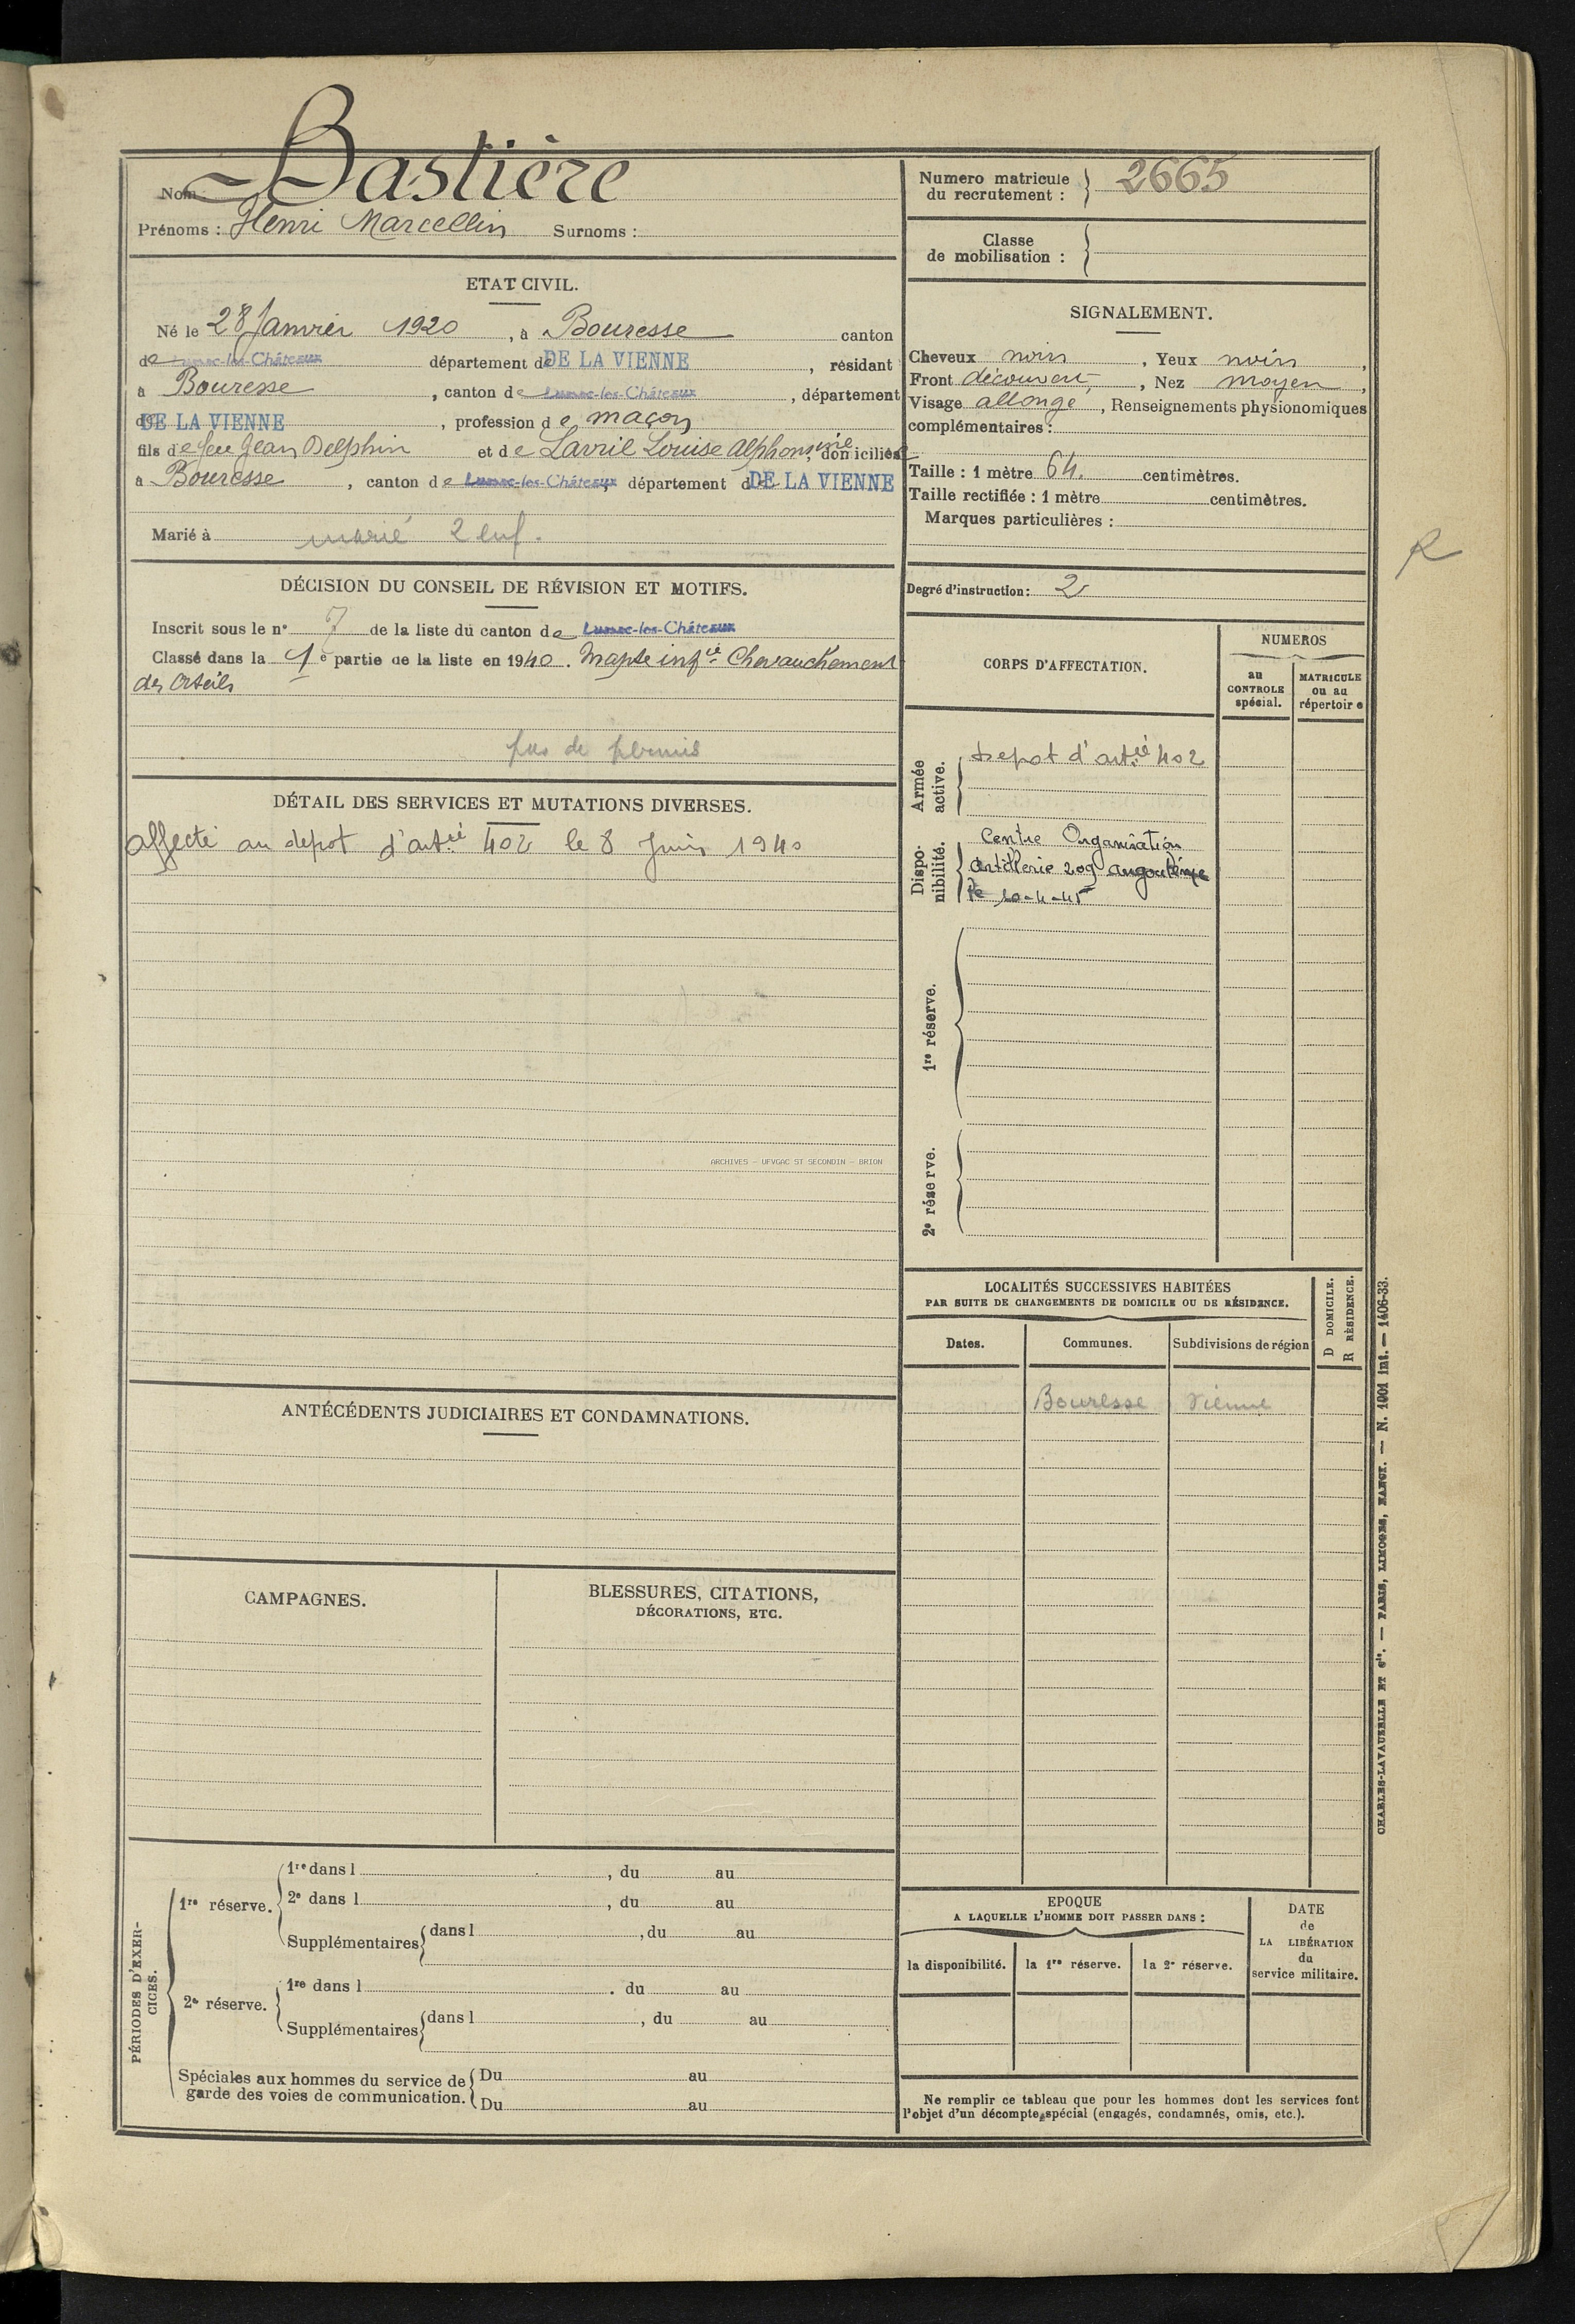 Nom Bastière
Prénoms : Henri Marcellin Surnoms :
ETAT CIVIL.
Né le 28 Janvier 1920, à Bouresse canton
de Lussac-les-Châteaux département de DE LA VIENNE, résidant
à Bouresse, canton de Lussac-les-Châteaux, département
de DE LA VIENNE, profession de maçon
fils de feu Jean Delphin et de Lavril Louise Alphonsine, domiciliés
à Bouresse, canton de Lussac-les-Châteaux, département de DE LA VIENNE
Marié à marié 2 enf.
DÉCISION DU CONSEIL DE RÉVISION ET MOTIFS.
Inscrit sous le n° 7 de la liste du canton de Lussac-les-Châteaux
Classé dans la 1e partie de la liste en 1940. Inapte infie Chevauchement
des Orteils
pas de permis
DÉTAIL DES SERVICES ET MUTATIONS DIVERSES.
Affecté au dépot d'artie 402 le 8 Juin 1940
ARCHIVES - UFVGAC ST SECONDIN - BRION
ANTÉCÉDENTS JUDICIAIRES ET CONDAMNATIONS.
CAMPAGNES.
BLESSURES, CITATIONS,
DÉCORATIONS, ETC.
PÉRIODES D'EXER-
CICES.
1re réserve.
1re dans l , du au
2e dans l , du au
Supplémentaires dans l , du au
2e réserve.
1re dans l . du au
Supplémentaires dans l , du au
Spéciales aux hommes du service de
garde des voies de communication.
Du au
Du au
Numero matricule
du recrutement : 2665
Classe
de mobilisation :
SIGNALEMENT.
Cheveux noirs, Yeux noirs,
Front découvert, Nez moyen,
Visage allongé, Renseignements physionomiques
complémentaires :
Taille : 1 mètre 64. centimètres.
Taille rectifiée : 1 mètre centimètres.
Marques particulières :
R
Degré d'instruction : 2
CORPS D'AFFECTATION.
NUMEROS
au
CONTROLE
spécial.
MATRICULE
ou au
répertoire
Armée
active.
Depot d'artie 402
Dispo-
nibilité.
Centre Organisation
Artillerie 209 Angoulême
le 10-4-45
1re réserve.
2e réserve.
LOCALITÉS SUCCESSIVES HABITÉES
PAR SUITE DE CHANGEMENTS DE DOMICILE OU DE RÉSIDENCE.
D DOMICILE.
R RÉSIDENCE.
Dates. Communes. Subdivisions de région
Bouresse Vienne
EPOQUE
A LAQUELLE L'HOMME DOIT PASSER DANS :
la disponibilité. la 1re réserve. la 2e réserve.
DATE
de
LA LIBÉRATION
du
service militaire.
Ne remplir ce tableau que pour les hommes dont les services font
l'objet d'un décompte spécial (engagés, condamnés, omis, etc.).
CHARLES-LAVAUZELLE ET Cie. — PARIS, LIMOGES, NANCY. — N. 1001 int. — 1406-33.